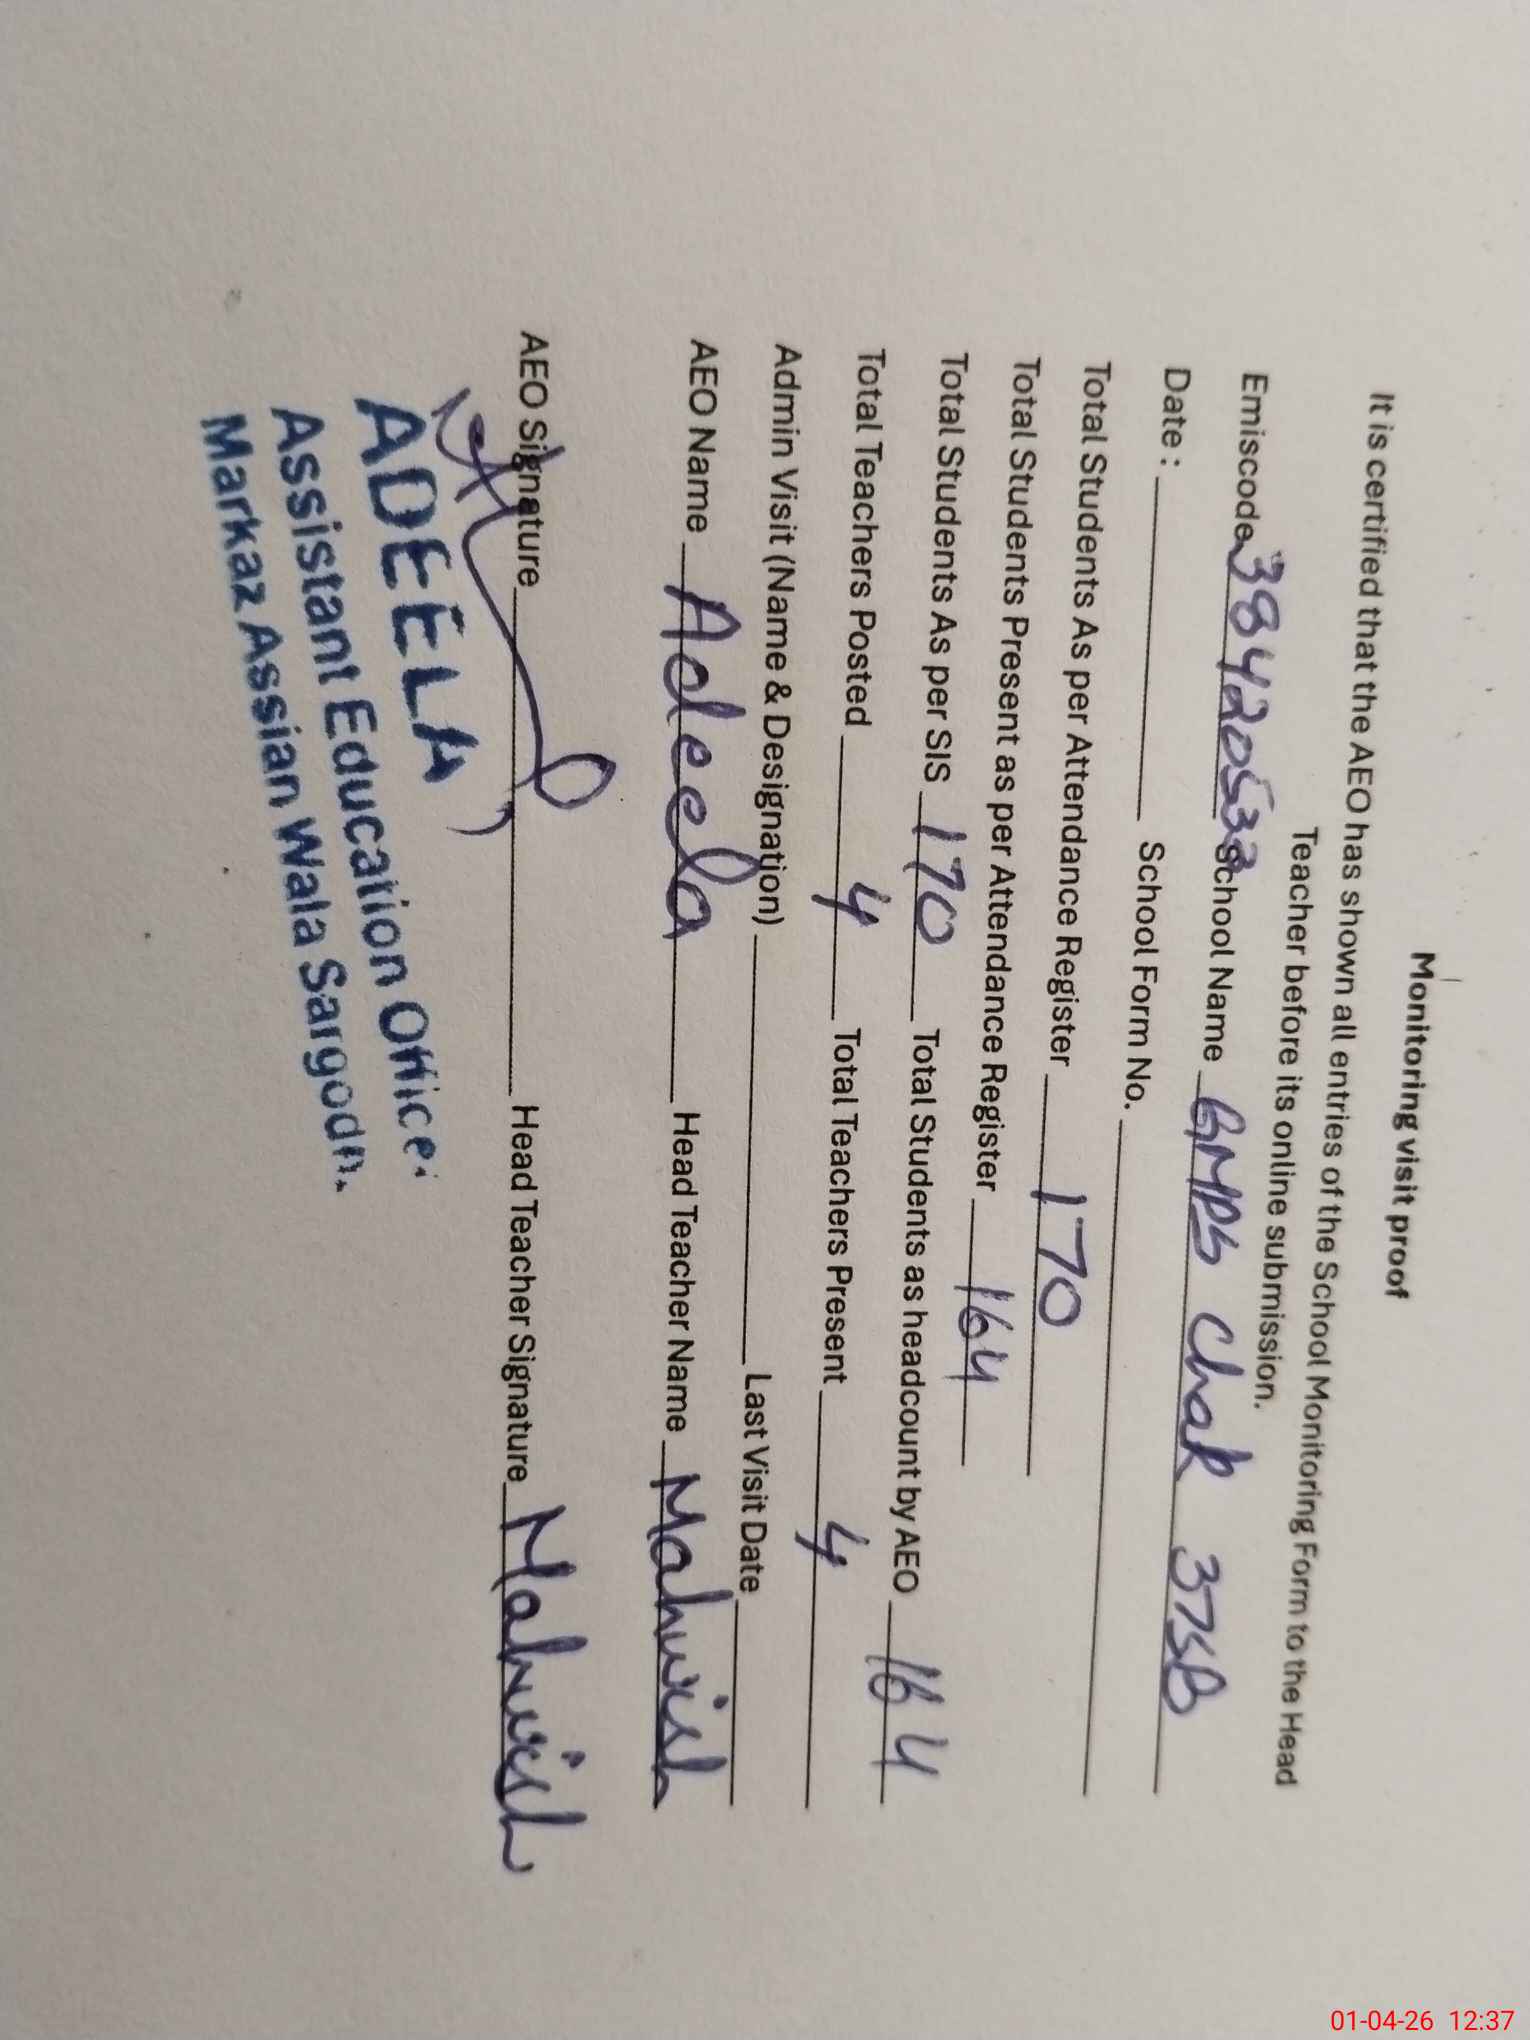 Monitoring visit proof
It is certified that the AEO has shown all entries of the School Monitoring Form to the Head
Teacher before its online submission.
Emiscode 38420533 School Name GMPS Chak 37SB
Date : ____ School Form No. ____
Total Students As per Attendance Register 170
Total Students Present as per Attendance Register 164
Total Students As per SIS 170 Total Students as headcount by AEO 164
Total Teachers Posted 4 Total Teachers Present 4
Admin Visit (Name & Designation) ____ Last Visit Date ____
AEO Name Adeela Head Teacher Name Mahwish
AEO Signature ____ Head Teacher Signature Mahwish
ADEELA
Assistant Education Office
Markaz Assian Wala Sargodh.
01-04-26 12:37